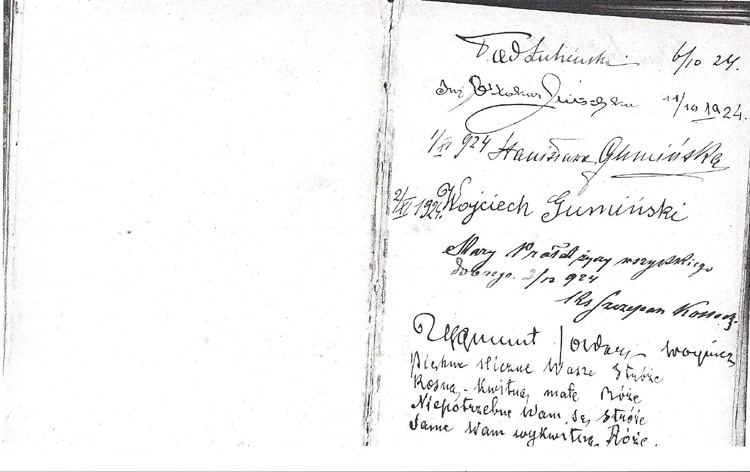 Tad Łubieński 6/10 24.
Inż 11/10 1924.
1/XI 924 Stanisława Gumińska
2/XI 1924. Wojciech Gumiński
życzy wszystkiego
dobrego. 2/12 924
Ks Szczepan
Zygmunt
Piękne śliczne Wasze Stróże
Rosną, Kwitną, małe Róże
Niepotrzebne Wam, są, Stróże
Same Wam wykwitną, Róże.